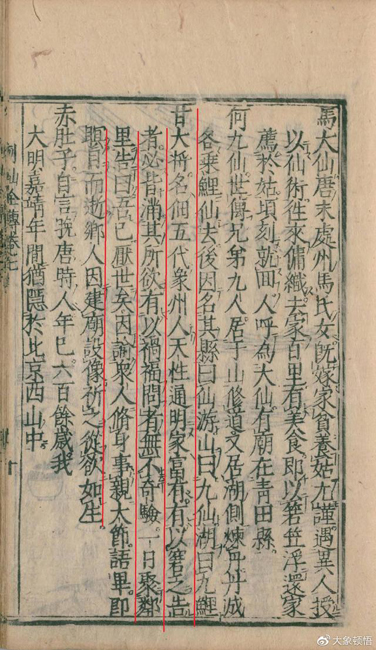 馬大仙唐末處州馬氏女既嫁家貧養姑尤謹遇異人授
以仙術往來傭織去家百里有美食即以箬笠浮還家
薦於姑頃刻就回人呼為大仙有廟在青田縣
何九仙世傳兄弟九人居于山修道又居湖側煉丹丹成
各乘鯉仙去後因名其縣曰仙游山曰九仙湖曰九鯉
甘大將名佃五代象州人天性通明家富有有以窘乏告
者必皆滿其所欲有以禍福問者無不奇驗一日聚鄰
里告曰吾已厭世矣因諭眾人脩身事親大節語畢即
瞑目而逝鄉人因建廟設像祈之從欲如生
赤肚子自言唐時人年已六百餘歲我
大明嘉靖年間猶隱於北京西山中
@大象顿悟